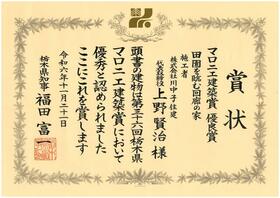 賞状
マロニエ建築賞 優良賞
田園を眺む回廊の家
施工者
株式会社川中子住建
代表取締役 上野 賢治 様
頭書の建物は第三十六回栃木県
マロニエ建築賞において
優秀と認められました
ここにこれを賞します
令和六年十一月二十一日
栃木県知事 福田 富一